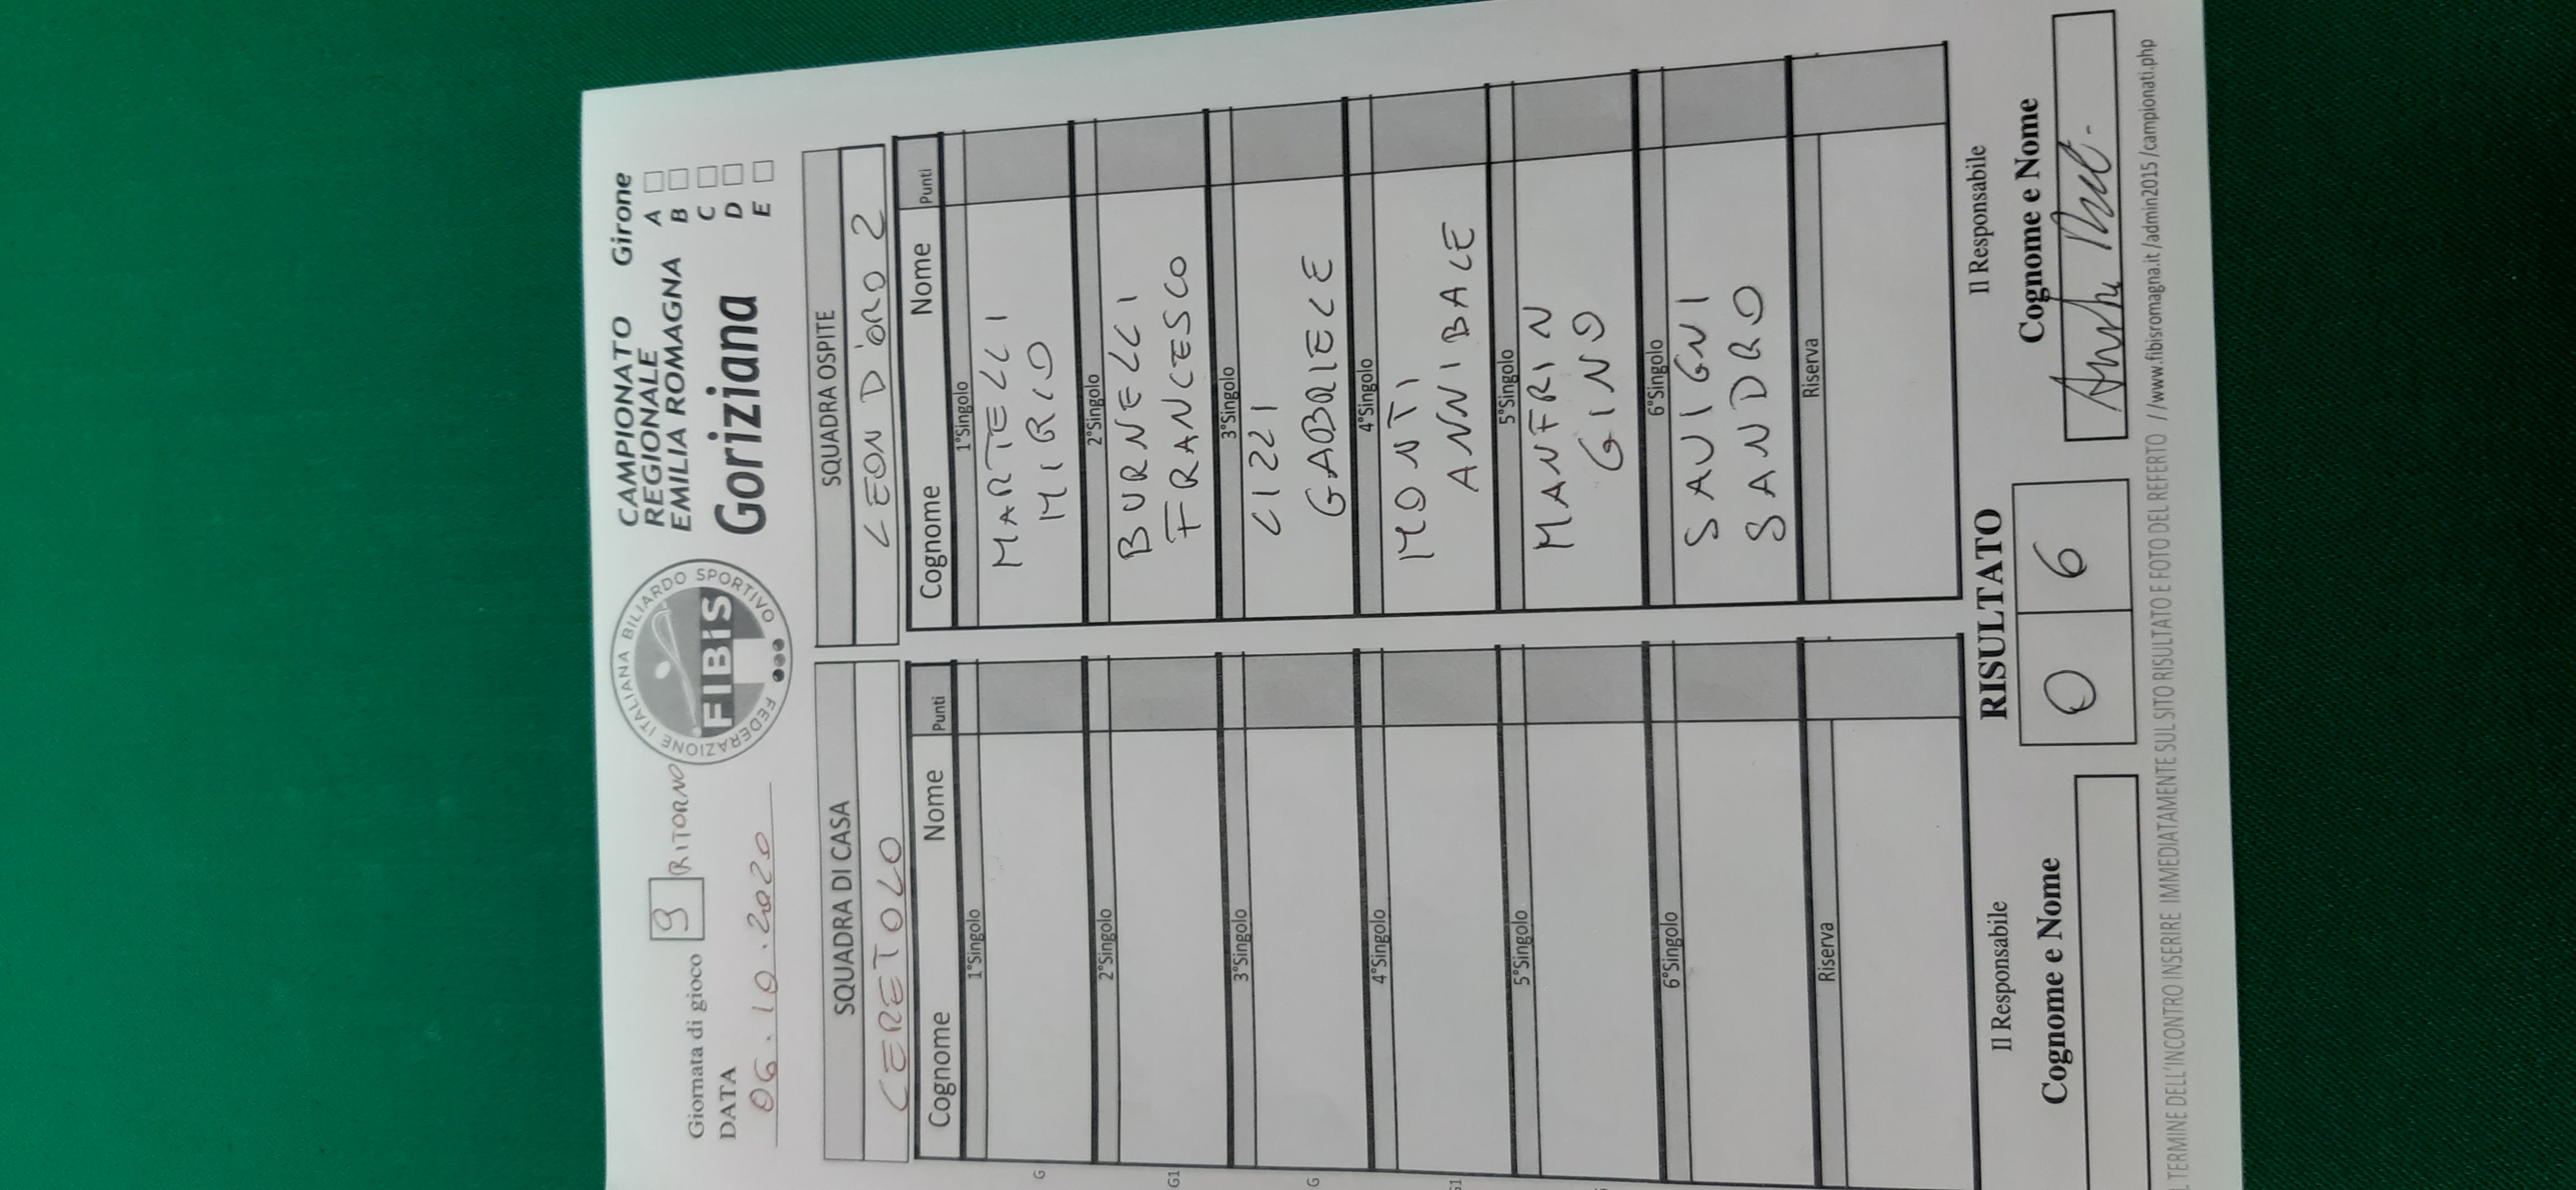 Giornata di gioco 9 RITORNO
DATA
06.10.2020
FEDERAZIONE ITALIANA BILIARDO SPORTIVO
FIBiS
CAMPIONATO Girone
REGIONALE A
EMILIA ROMAGNA B
C
Goriziana D
E
SQUADRA DI CASA SQUADRA OSPITE
CERETOLO LEON D'ORO 2
Cognome Nome Punti Cognome Nome Punti
1°Singolo 1°Singolo
MARTELLI
MIRCO
G
2°Singolo 2°Singolo
BURNELLI
FRANCESCO
G1
3°Singolo 3°Singolo
CIZZI
GABRIELE
G
4°Singolo 4°Singolo
MONTI
ANNIBALE
5°Singolo 5°Singolo
MANFRIN
GINO
6°Singolo 6°Singolo
SAVIGNI
SANDRO
Riserva Riserva
Il Responsabile RISULTATO Il Responsabile
Cognome e Nome 0 6 Cognome e Nome
TERMINE DELL'INCONTRO INSERIRE IMMEDIATAMENTE SUL SITO RISULTATO E FOTO DEL REFERTO //www.fibisromagna.it/admin2015/campionati.php